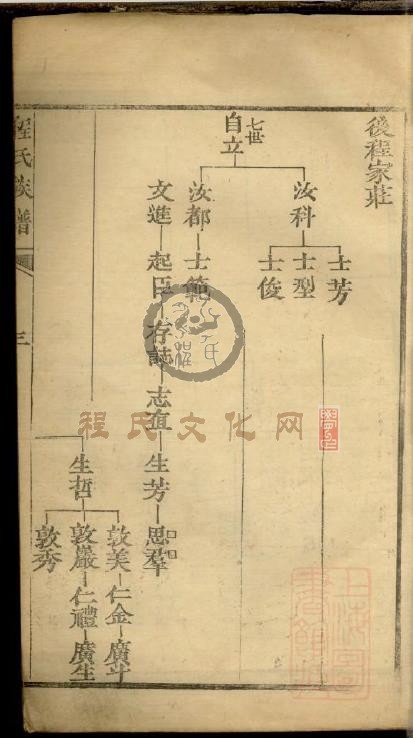 後程家莊
七世
自立
汝科
士芳
士型
士俊
汝都
士範
文進
起臣
存誌
志直
生芳
思羣
生哲
敦美
仁金
廣斗
敦嚴
仁禮
廣生
敦秀
程氏族譜
三
程氏文化网